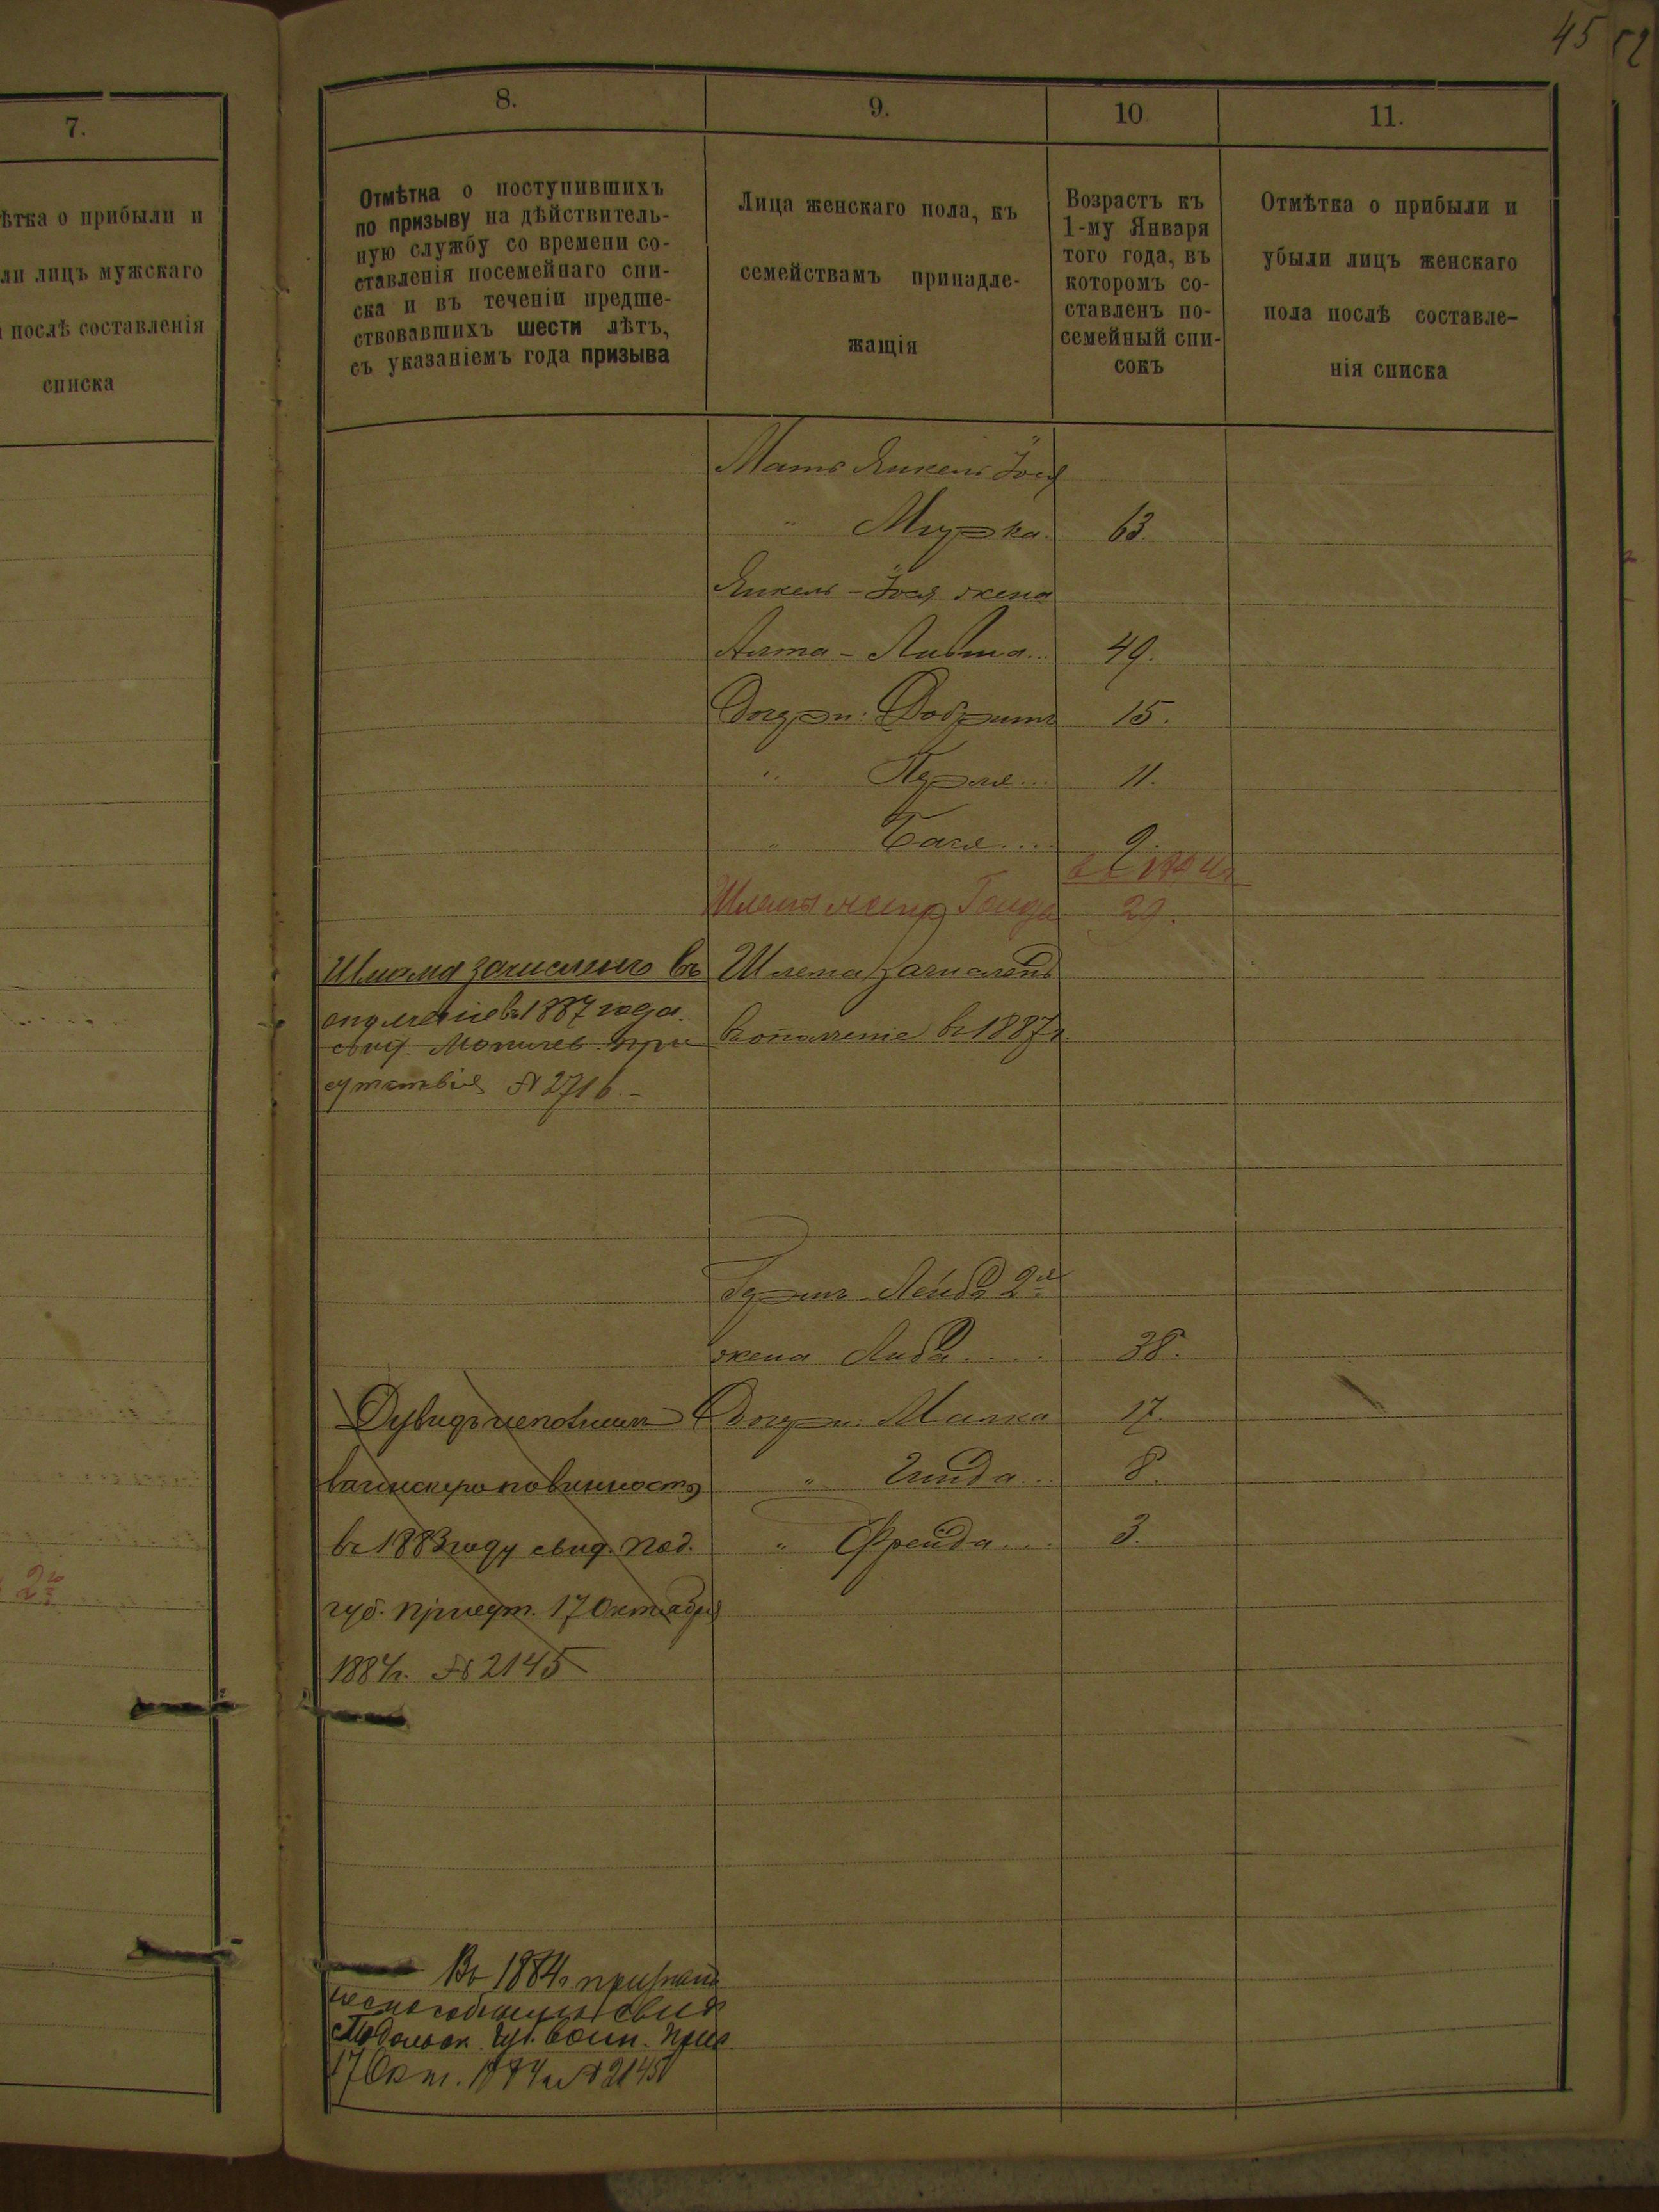 45
52
7.
ѣтка о прибыли и
ли лицъ мужскаго
послѣ составленія
списка
2го
8.
Отмѣтка о поступившихъ
по призыву на дѣйствитель-
ную службу со времени со-
ставленія посемейнаго спи-
ска и въ теченіи предше-
ствовавшихъ шести лѣтъ,
съ указаніемъ года призыва
9.
Лица женскаго пола, къ
семействамъ принадле-
жащія
10
Возрастъ къ
1-му Января
того года, въ
которомъ со-
ставленъ по-
семейный спи-
сокъ
11.
Отмѣтка о прибыли и
убыли лицъ женскаго
пола послѣ составле-
нія списка
Мать Янкель Іося
" Мирка 63.
Янкель - Іося жена
Алта - Либша.. 49.
Дочери: Добришъ 15.
" Перля... 11.
" Бася.... 9.
Шлема жена 29.
Шлема зачисленъ въ
ополченіе въ 1887 года.
свид. Могилев. при
сутствія № 2716.-
Шлема зачисленъ
въ ополченіе въ 1887 г.
Гершъ - Лейба 2я
жена Либа.... 38.
Дочери: Малка 17.
" Гинда... 8.
" Фрейда... 3.
Дувидъ исполнилъ
воинскую повинность
въ 1883 году свид. Под.
губ. присут. 17 Октября
1884 г. № 2145
Въ 1884 г признанъ
неспособнымъ свид
Подольск. губ. воин. прис.
17 Окт. 1884 г № 2145